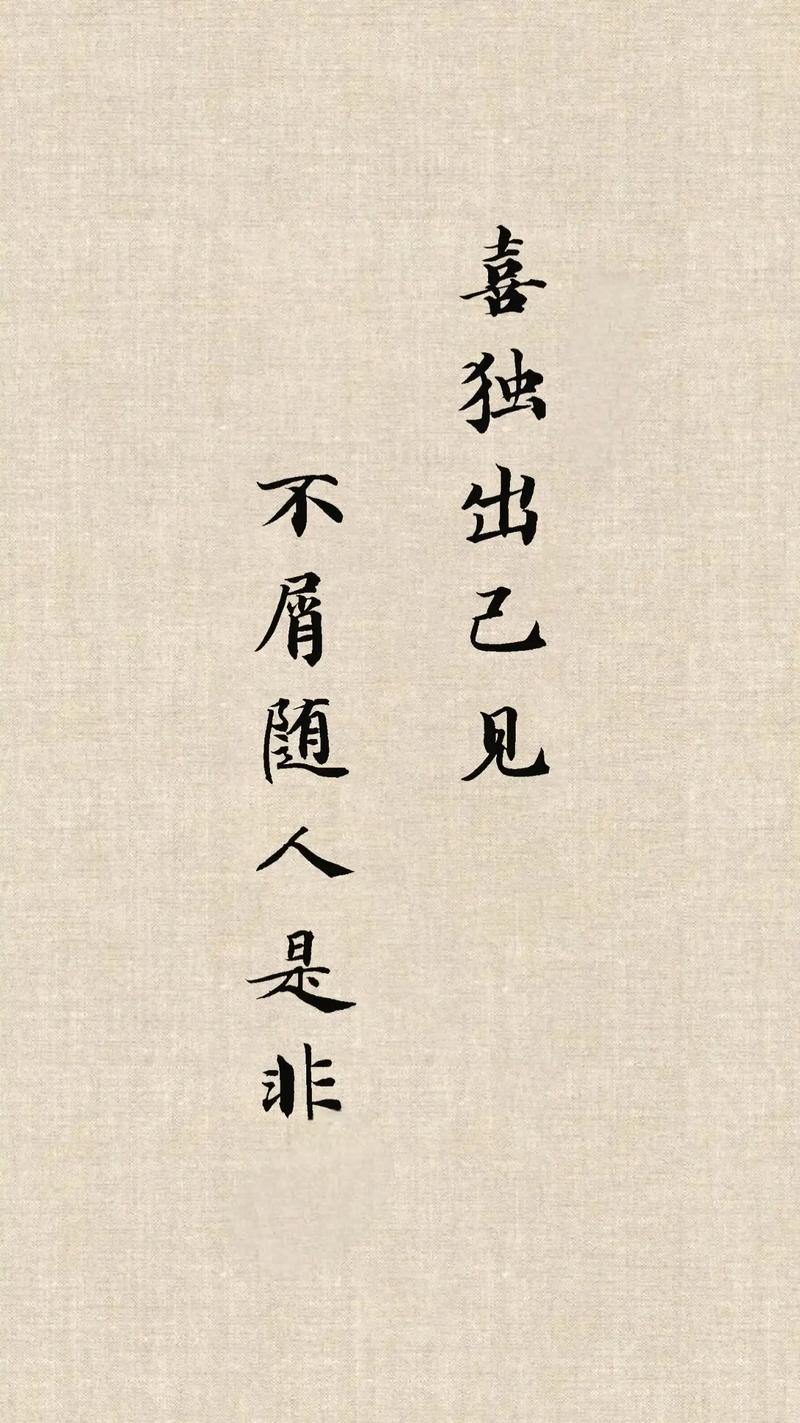 喜独出己见
不屑随人是非